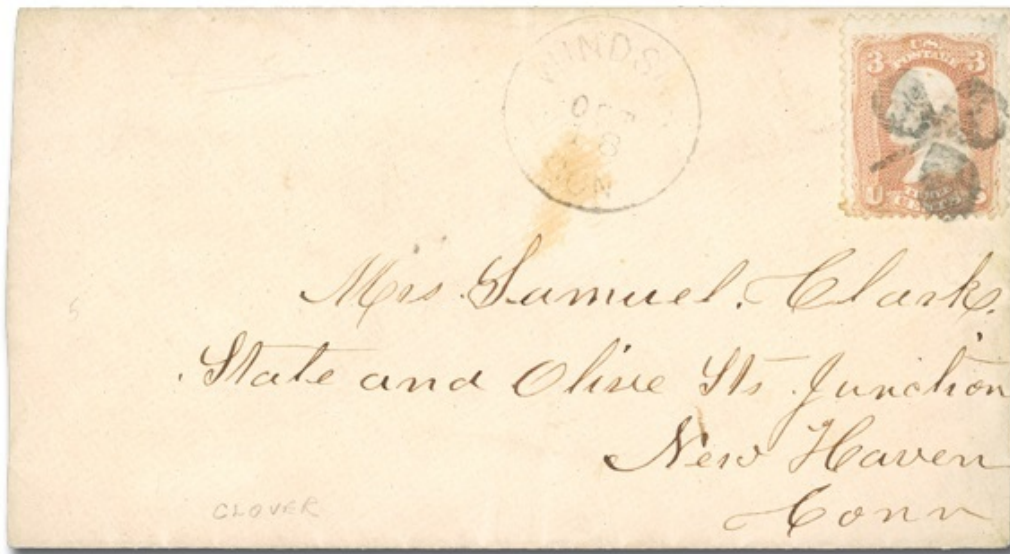 WINDS
OCT
CON
U.S.
POSTAGE
3 3
U
Mrs. Samuel. Clark.
State and Olive Sts. Junction
New Haven
Conn
CLOVER